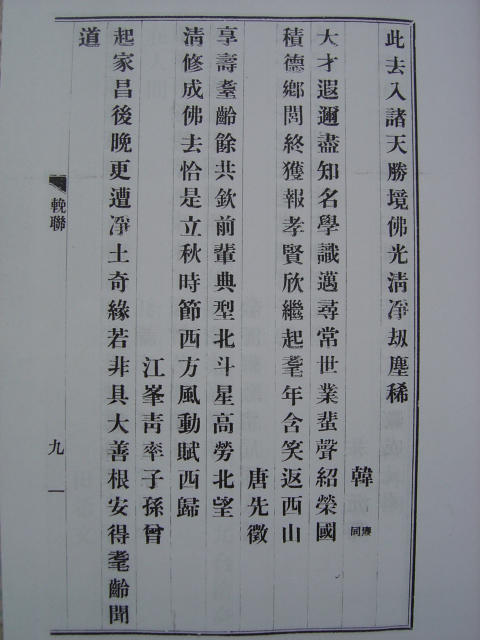 此去入諸天勝境佛光清淨刼塵稀
韓
大才遐邇盡知名學識邁尋常世業蜚聲紹榮國
積德鄉閭終獲報孝賢欣繼起耄年含笑返西山
唐先徵
享壽耋齡餘共欽前輩典型北斗星高勞北望
清修成佛去恰是立秋時節西方風動賦西歸
江峯青率子孫曾
起家昌後晚更遭淨土奇緣若非具大善根安得耄齡聞
道
輓聯
九一